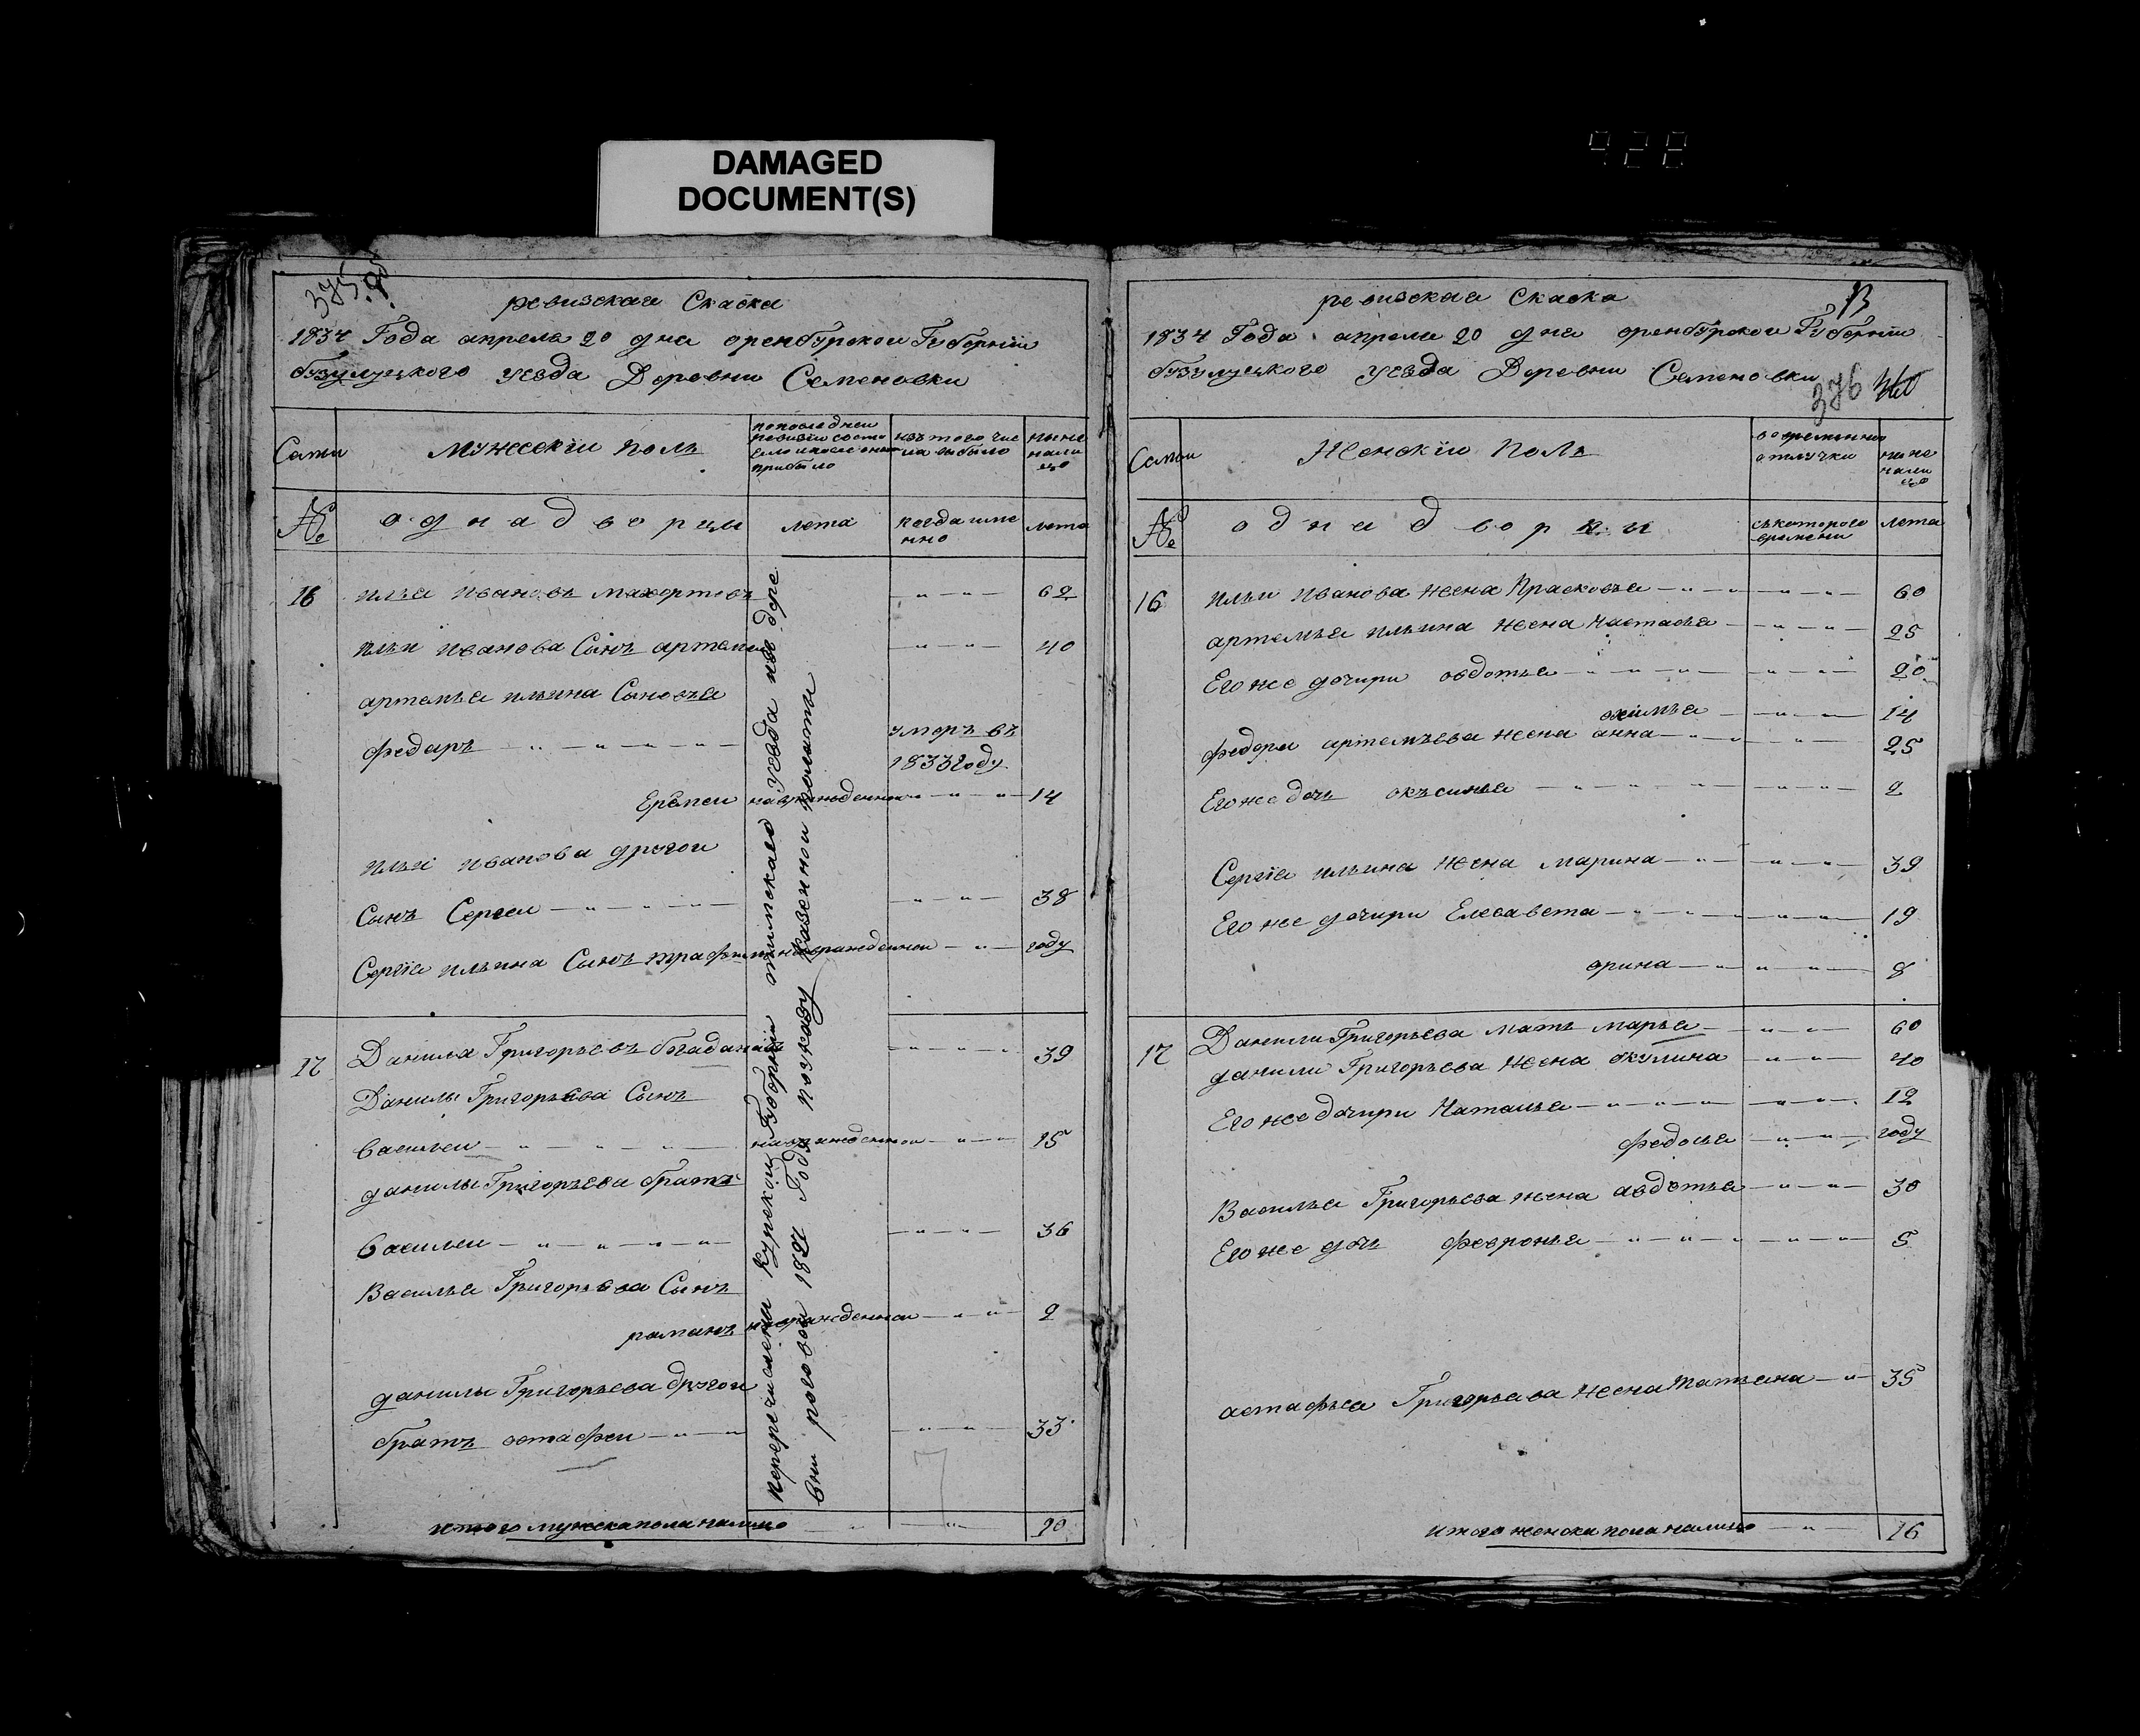 DAMAGED
DOCUMENT(S)
922
375
ревизская Скаска
1834 Года апреля 20 дня оренбурской Губернiи
бузулуцкого уезда Деревни Семеновки
Семи
мужескiи полъ
попоследнеи
ревизiи состо
яло ипосле оной
прибыло
изъ того чис
ла выбыло
ныне
нали
цо
№
однадворцы
лета
когда имя
нно
лета
16 илья ивановъ махортовъ — " — " — 62
ильи иванова Сынъ артемеи — " — " — 40
артемья ильина Сыновья
федаръ — " — " — " — " — умеръ въ
1833 году
Ерѳмеи новорожденнои — " — " — 14
ильи иванова другои
Сынъ Сергеи — " — " — 38
Сергiя ильина Сынъ трафимъ новорожденнои — " — году
17 Данила Григорьевъ богаданав — " — " — 39
Данилы Григорьева Сынъ
Васильеи — " — " — новорожденнои — " — 15
данилы Григорьева братъ
Васильеи — " — " — " — 36
Василья Григорьева Сынъ
раманъ новорожденнои — " — " — 2
данилы Григорьева другои
братъ остафеи — " — 33
перечислены Курской Губернiи тимскаго уезда изъ дере
вни роговой 1827 Года поуказу Казенной палаты
итого мужеска пола налицо — " — 10
ревизская Скаска
13
1834 Года апреля 20 дня оренбурской Губернiи
бузулуцкого уезда Деревни Семеновки
376
Семьи
Женскiи Полъ
вовременной
отлучки
ныне
нали
цо
№
однадворки
съкоторого
времени
лета
16 ильи иванова жена Прасковья — " — " — 60
артемья ильина жена Настасья — " — " — 25
Егоже дочири овдотья — " — " — 20
акилина — " — 14
федора артемьева жена анна — " — " — 25
Егоже дочь окъсинья — " — " — 2
Сергiя ильина жена марина — " — " — 39
Егоже дочири Елесавета — " — " — 19
орина — " — " — 8
17 Данилы Григорьева мать марья — " — " — 60
данилы Григорьева жена окулина — " — " — 40
Егоже дочири Наталья — " — " — 12
федосья — " — " — году
Василья Григорьева жена авдотья — " — " — 30
Егоже дочь февронья — " — " — 5
астафья Григорьева жена татьяна — " — 35
итого женска пола налицо — " — 16